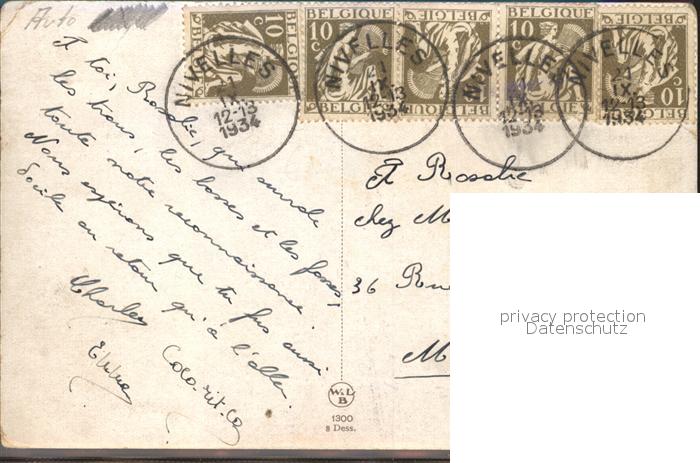 Auto
BELGIQUE 10 c BELGIE
BELGIQUE 10 c BELGIE
BELGIQUE 10 c BELGIE
BELGIQUE 10 c BELGIE
BELGIQUE 10 c BELGIE
NIVELLES
21
IX
12-13
1934
NIVELLES
21
IX
12-13
1934
NIVELLES
12-13
1934
NIVELLES
21
IX
12-13
1934
A toi, Rosalie, qui
les trous, les bosses et les fosses,
toute notre reconnaissance.
Nous espérons que tu fus aussi
docile au retour qu'à l'aller.
Charley
Coco-rit-Co
A Rosalie
chez M
36 Rue
M
W.L.
B
1300
8 Dess.
privacy protection
Datenschutz